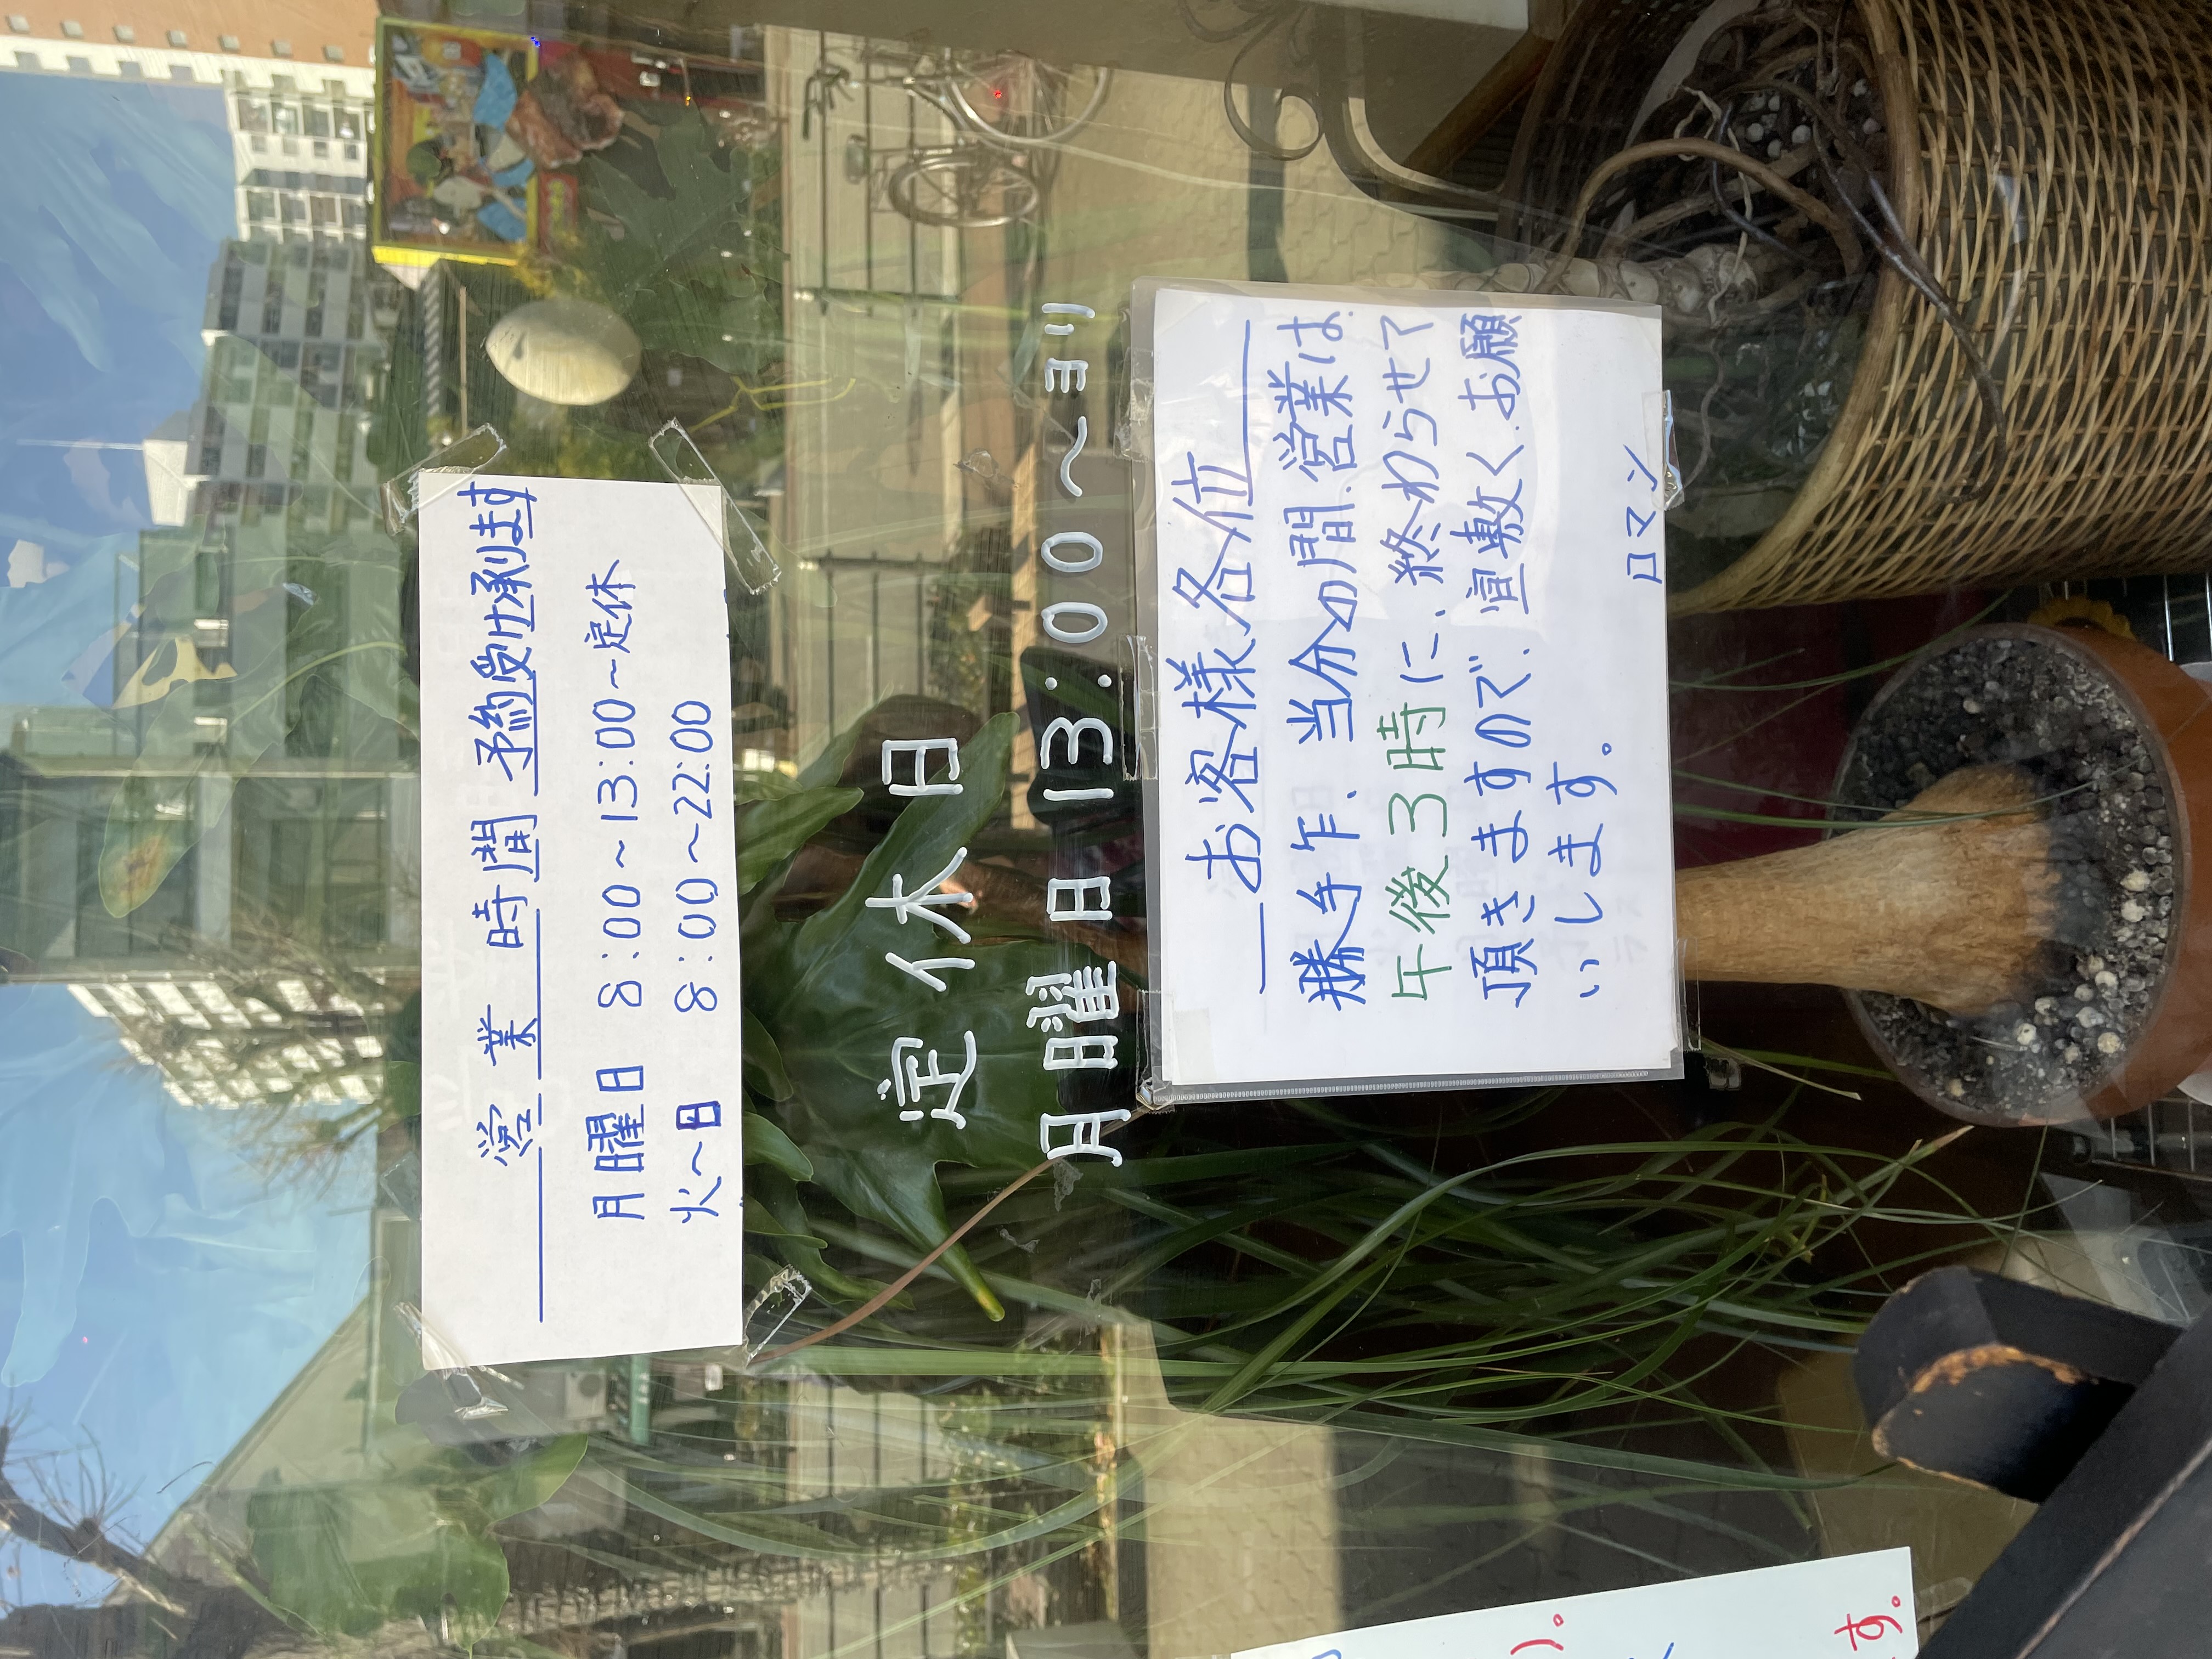 営業時間 予約受け承ります
月曜日 8:00～13:00～定休
火～日 8:00～22:00
定休日
月曜日13:00～ヨリ
お客様各位
勝手乍、当分の間、営業は、
午後3時に、終わらせて
頂きますので、宜敷く、お願
いします。
ロマン
す。